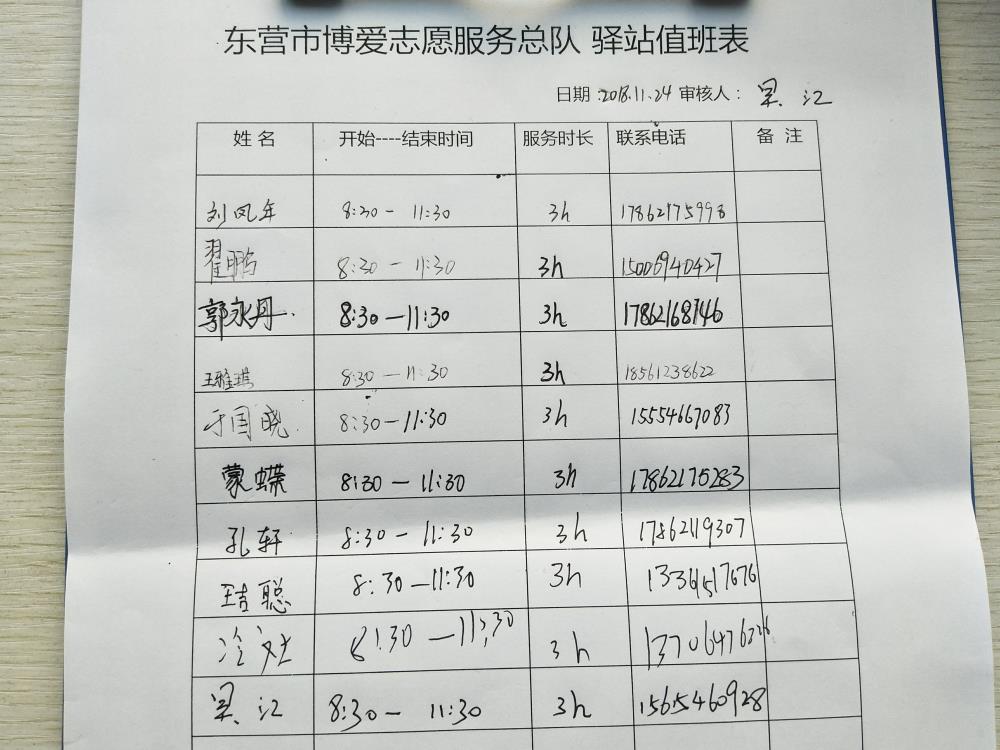 东营市博爱志愿服务总队 驿站值班表
日期:2018.11.24 审核人: 吴江
姓名 开始----结束时间 服务时长 联系电话 备注
刘凤年 8:30- 11:30 3h 17862175998
翟鹏 8:30 - 11:30 3h 15006940427
郭永丹 8:30 -11:30 3h 17862168746
王雅琪 8:30 - 11:30 3h 18561238622
于国晓 8:30-11:30 3h 15554667083
蒙蝶 8:30 - 11:30 3h 17862175283
孔轩 8:30- 11:30 3h 17862119307
王吉聪 8:30-11:30 3h
8:30 -11:30 3h 13706476326
吴江 8:30- 11:30 3h 15615460928